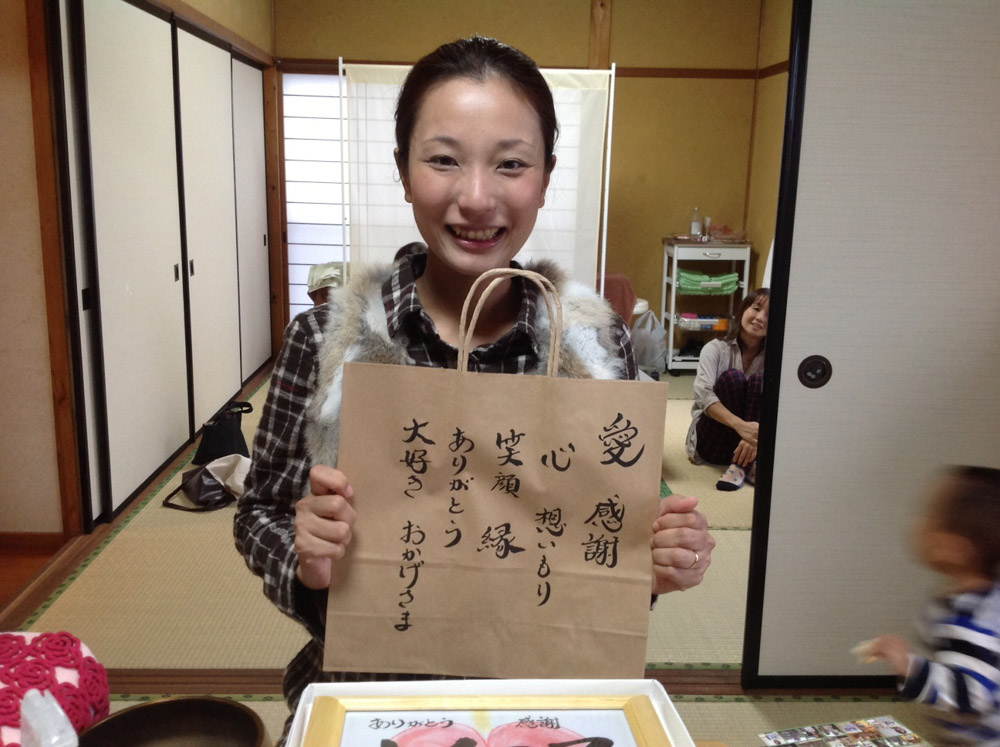 愛 感謝
心 想いもり
笑顔 縁
ありがとう
大好き おかげさま
ありがとう 感謝